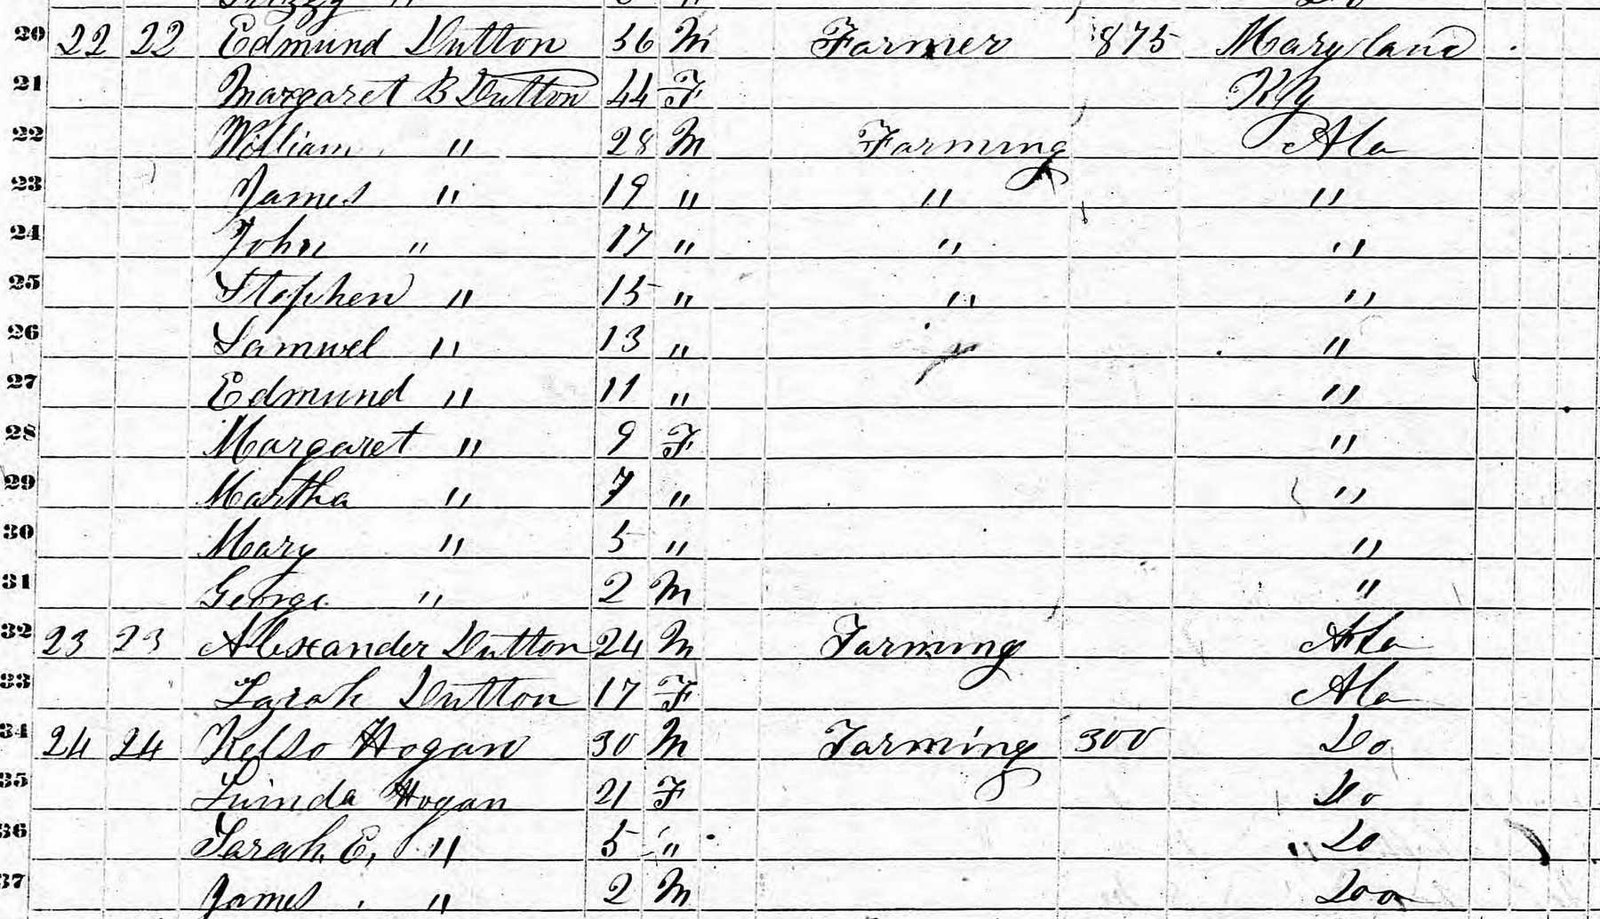 20 22 22 Edmund Dutton 56 M Farmer 875 Maryland
21 Margaret B Dutton 44 F Ky
22 William " 28 M Farming Ala
23 James " 19 " " "
24 John " 17 " " "
25 Stephen " 15 " " "
26 Samuel " 13 " "
27 Edmund " 11 " "
28 Margaret " 9 F "
29 Martha " 7 " "
30 Mary " 5 " "
31 George " 2 M "
32 23 23 Alexander Dutton 24 M Farming Ala
33 Sarah Dutton 17 F Ala
34 24 24 Kelso Hogan 30 M Farming 300 Do
35 Hogan 21 F Do
36 Sarah E, " 5 " Do
37 James " 2 M Do